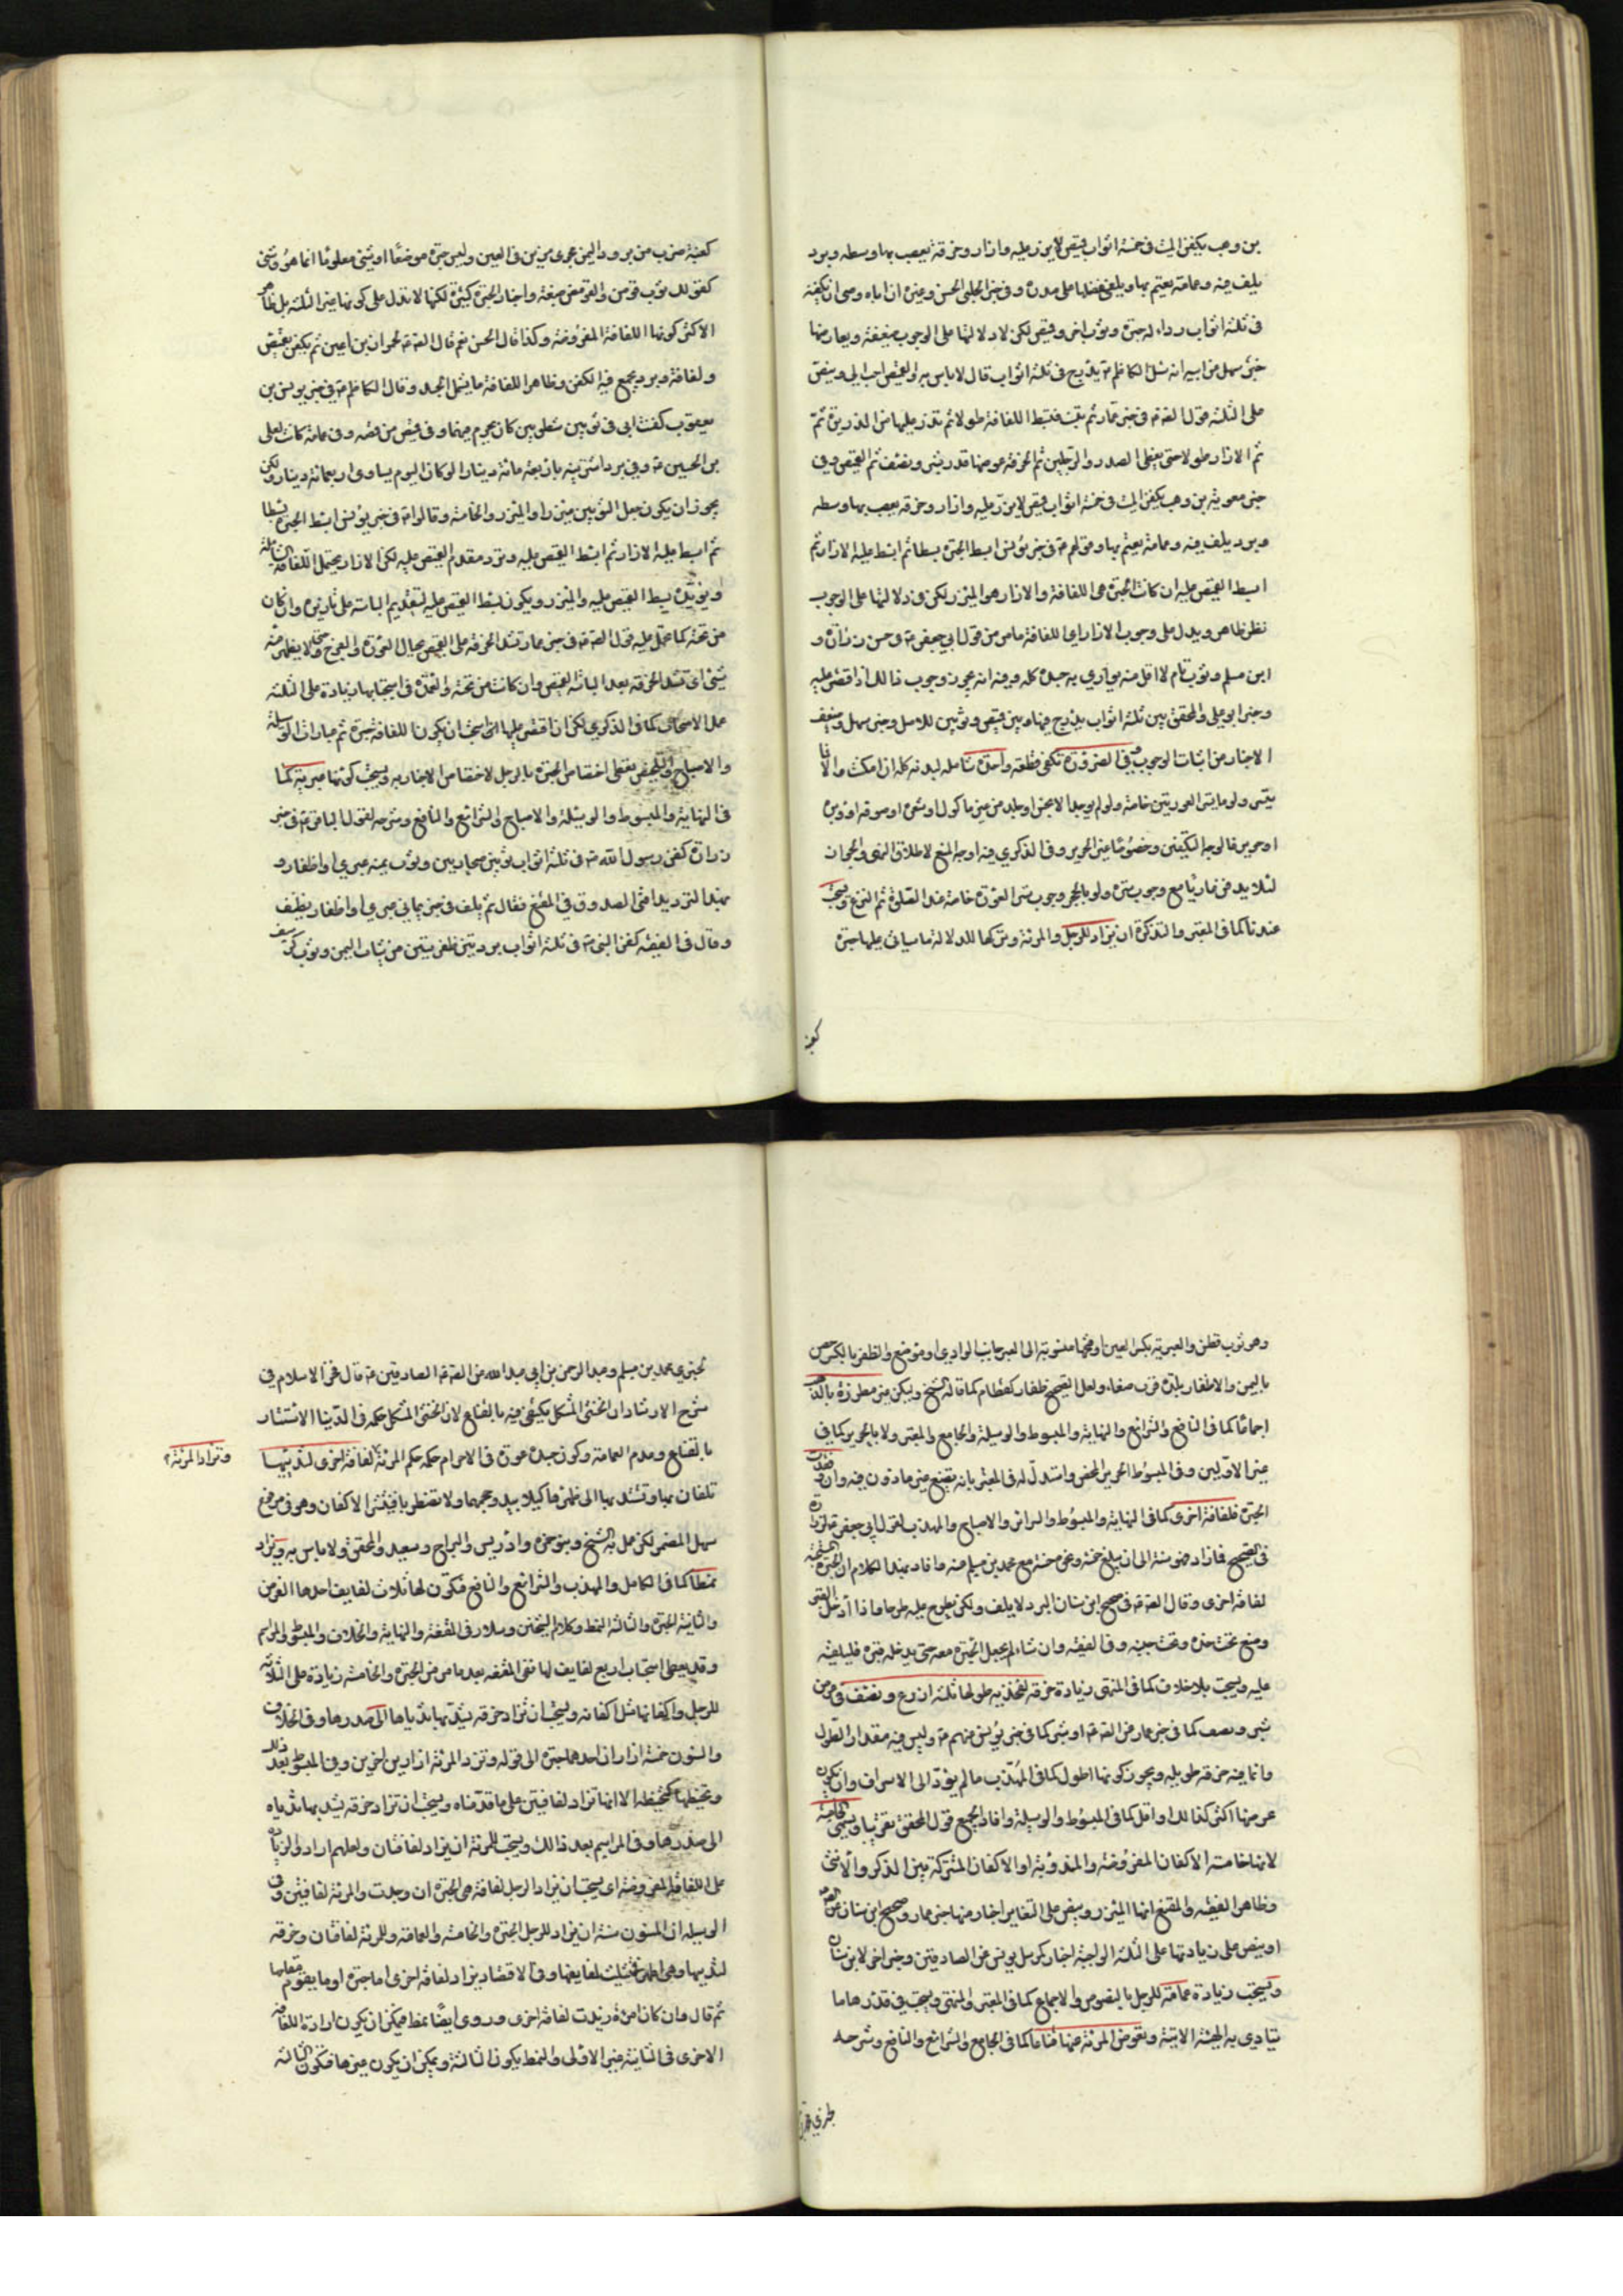 بن وهب يكفن الميت في خمسة اثواب قميص لا يزر عليه وازار وخرقة يعصب بها وسطه وبرد
يلف فيه وعمامة يعتم بها ويلقى فضلها على صدره وفي خبر الحلبي الحسن وغيره ان اباه وصى ان يكفنه
في ثلثة اثواب رداء له حبرة وثوب اخر وقميص لكن لا دلالة لها على الوجوب ضعيفة ويعارضها
خبر سهل عن ابيه انه سئل الكاظم ع يدرج في ثلثة اثواب قال لا باس به والقميص احب الي وينص
على الثلثة قول الصادق ع في خبر عمار ثم تبدء فتبسط اللفافة طولا ثم تذر عليها من الذريرة ثم
ثم الازار طولا حتى يغطى الصدر والرجلين ثم الخرقة عرضها قدر شبر ونصف ثم القميص وفي
خبر معوية بن وهب يكفن الميت في خمسة اثواب قميص لا يزر عليه وازار وخرقة يعصب بها وسطه
وبرد يلف فيه وعمامة يعتم بها وقولهم ع في خبر يونس ابسط الحبرة بسطا ثم ابسط عليها الازار ثم
ابسط القميص عليه ان كانت الحبرة هي اللفافة والازار هو المئزر لكن في دلالتها على الوجوب
نظر ظاهر ويدل على وجوب الازار اي اللفافة ما مر من قول ابي جعفر ع في حسن زرارة و
ابن مسلم وثوب تام لا اقل منه يواري به جسده كله وفيه انه يجوز وجوب ذلك اذا اقتصر عليه
وخير ابو علي والمحقق بين ثلثة اثواب يدرج فيها وبين قميص وثوبين للاصل وخبر سهل وضعف
الاخبار عن اثبات الوجوب وفي الضرورة تكفي قطعة واحدة شاملة لبدنه كله ان امكنت والا فما
يتيسر ولو ما يستر العورتين خاصة ولو لم يوجد الا نجس او جلد من غير ماكول او شعره او صوفه او وبره
او حرير فالوجه التكفين وخصوصا غير الحرير وفي الذكرى فيه اوجه المنع لاطلاق النهي والجواز
لئلا يدفن عاريا مع وجوب ستره ولو بالحجر ووجوب ستر العورة خاصة عند الصلوة ثم النزع ويستحب
عندنا كما في المعتبر والتذكرة ان يزاد للرجل والمرئة وتركها للدلالة ما سياتي عليها حبرة
كعنبة
كعنبة ضرب من برود اليمن عمرى يزين في العين وليس حبرة موضعا او شيئ معلوما انما هو وشى
كقولك ثوب قرمز والقرمز صبغة واخبار الحبرة كثيرة لكنها لا تدل على كونها غير الثلثة بل ظاهر
الاكثر كونها اللفافة المفروضة وكذا قال الحسن نعم قال الصادق ع لحمران بن اعين ثم يكفن بقميص
ولفافة وبرد يجمع فيه الكفن وظاهر اللفافة ما يشمل الجسد وقال الكاظم ع في خبر يونس بن
يعقوب كفنت ابى في ثوبين شطويين كان يحرم فيهما وفي قميص من قمصه وفي عمامة كانت لعلي
بن الحسين ع وفي برد اشتريته باربعين دينارا لو كان اليوم يساوى اربعمائة دينار ولكن
يجوز ان يكون جعل الثوبين مئزرا والمئزر والخامسة وقالوا ع في خبر يونس ابسط الحبرة بسطا
ثم ابسط عليها الازار ثم ابسط القميص عليه وترد مقدم القميص عليه لكن الازار يحتمل اللفافة الشاملة
ويؤيده بسط القميص عليه والمئزر ويكون بسط القميص عليه لتقديم الباسه على تازيره وان كان
من تحته كما يحتمل عليه قول الصادق ع في خبر عمار تشد الخرقة على القميص بحيال العورة والفرج حتى لا يظهر منه
شئ اي تشد الخرقة بعد الباسه القميص وان كانت من تحته والعمدة في استحبابها زيادة على الثلثة
عمل الاصحاب كما في الذكرى لكن ان اقتصر عليها استحب ان يكون اللفافة حبرة ثم عبارات الوسيلة
والاصباح والتلخيص يعطى اختصاص الحبرة بالرجل لاختصاص الاخبار به ويستحب كونها عبرية كما
في النهاية والمبسوط والوسيلة والاصباح والشرائع والنافع وشرحه لقول الباقر ع في خبر
زرارة كفن رسول الله ص في ثلثة اثواب ثوبين صحاريين وثوب يمنة عبري او اظفار و
بهذا الترديد افتى الصدوق في المقنع فقال ثم يلف في خبر يماني عبري او اظفار نظيف
وقال في الفقيه كفن النبي ص في ثلثة اثواب بردتين ظفريتين من ثياب اليمن وثوب كرسف
وهو ثوب قطن والعبرية بكسر العين او فتحها منسوبة الى العبر جانب الوادي او موضع والظفر بالكسر حصن
باليمن والاظفار بلدة قرب صنعاء ولعل الصحيح ظفار كقطام كما قاله الشيخ ويكن غير مطرزة بالذهب
اجماعا كما في النافع والشرائع والنهاية والمبسوط والوسيلة والجامع والمعتبر ولا بالحرير كما في
غير الاولين وفي المبسوط الحرير المحض واستدل له في المعتبر بانه تضييع غير ماذون فيه وان فقدت
الحبرة فلفافة اخرى كما في النهاية والمبسوط والسرائر والاصباح والمهذب لقول ابي جعفر ع لزرارة
في الصحيح فما زاد فهو سنة الى ان يبلغ خمسة ونحوه حسنه مع محمد بن مسلم عنه ع افاد بهذا الكلام ان الحبرة مستحبة
لفافة اخرى وقال الصادق ع في صحيح ابن سنان البرد لا يلف ولكن يطرح عليه طرحا فاذا ادخل القبر
وضع تحت خده وتحت جنبه وفي الفقيه وان شاء لم يجعل الحبرة معه حتى يدخله قبره فليلقيه
عليه ويستحب بلا خلاف كما في المنتهى زيادة خرقة لفخذيه طولها ثلثة اذرع ونصف في عرض
شبر ونصف كما في خبر عمار عن الصادق ع او شبر كما في خبر يونس عنهم ع وليس فيه مقدار الطول
وانما فيه خرقة طويلة ويجوز كونها اطول كما في المهذب ما لم يؤد الى الاسراف وان يكون
عرضها اكثر كذلك او اقل كما في المبسوط والوسيلة وافاد الجميع قول المحقق تقريبا ويسمى الخامسة
لانها خامسة الاكفان المفروضة والمندوبة او الاكفان المشتركة بين الذكر والانثى
وظاهر الفقيه والمقنع انها المئزر وينص على التغاير اخبار منها خبر عمار وصحيح ابن سنان عن الصادق
او ينص على زيادتها على الثلثة الواجبة اخبار كمرسل يونس عن الصادقين وخبر اخر لابن سنان
ويستحب زيادة عمامة للرجل بالنصوص والاجماع كما في المعتبر والمنتهى ويستحب في قدرها ما
يتادى به الهيئة الاتية وتعوض المرئة عنها قناعا كما في الجامع والشرائع والنافع وشرحه
لخبري محمد بن مسلم وعبد الرحمن بن ابي عبد الله عن الصادق الصادقين ع قال فخر الاسلام في
شرح الارشاد ان الخنثى المشكل يكتفى فيه بالقناع لان الخنثى المشكل حكمه في الدنيا الاستتار
بالقناع وعدم العمامة وكون جسده عورة في الاحرام حكمه حكم المرئة لفافة اخرى لثدييها
وتزاد المرئة
تلفان بها وتشد بها الى ظهرها كيلا يبدو حجمهما ولا تضطربا فتنتشر الاكفان وهو في مرفوع
سهل المضمر لكن عمل به الشيخ وبنو حمزة وادريس والبراج وسعيد والمحقق ولا باس به وتزاد
نمطا كما في الكامل والمهذب والشرائع والنافع فتكون لها ثلاث لفايف احدها الفرض
والثانية الحبرة والثالثة النمط وكلام الشيخين وسلار في المقنعة والنهاية والخلاف والمبسوط والمراسم
وقد يعطى استحباب اربع لفايف لها ففي المقنعة بعد ما مر من الحبرة والخامسة زيادة على الثلاثة
للرجل واكفانها مثل اكفانه ويستحب ان تزاد خرقة يشد بها ثدياها الى صدرها وفي الخلاف
والمسنون خمسة ازاران احدهما حبرة الى قوله وتزد المرئة ازارين اخرين وفي المبسوط بعد ذلك
وتحنيطها كتحنيطه الا انها تزاد لفافتين على ما قدمناه ويستحب ان تزاد خرقة يشد بها ثدياه
الى صدرها وفي المراسم بعد ذلك ويستحب للمرئة ان يزاد لفافتان ولعلهم ارادوا الزيادة
على اللفافة المفروضة اي يستحب ان يزاد الرجل لفافة هي الحبرة ان وجدت والمرئة لفافتين وفي
الوسيلة ان المسنون سنة ان يزاد للرجل الحبرة والخامسة والعمامة وللمرئة لفافتان وخرقة
لثدييها وهي اظهر في تثليث لفايفها وفي الاقتصاد يزاد لفافة اخرى اما حبرة او ما يقوم مقامها
ثم قال وان كان امرءة زيدت لفافة اخرى وروى ايضا نمط فيمكن ان يكون ارادة اللفافة
الاخرى في الثانية غير الاولى والنمط يكون الثالثة ويمكن ان يكون غيرها فتكون الثالثة